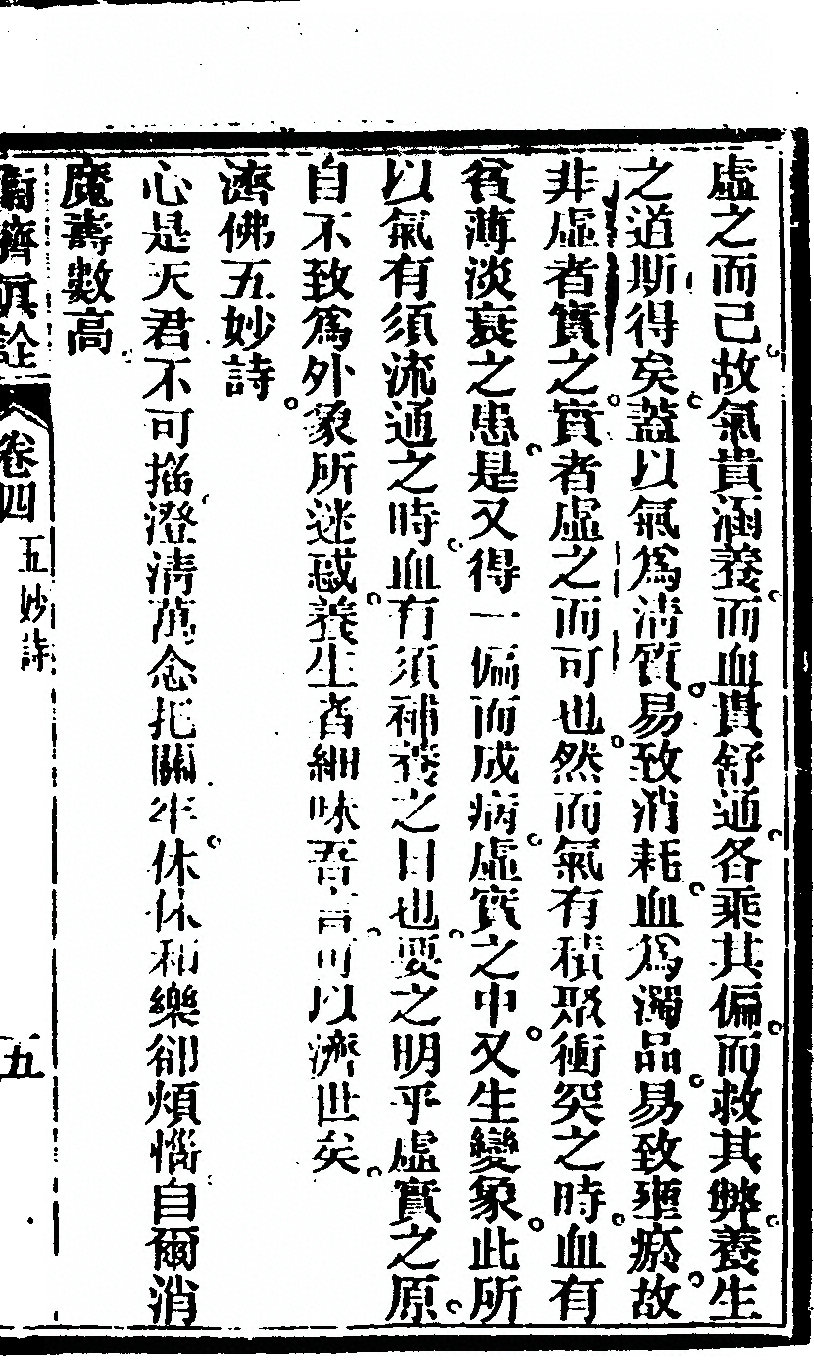 虛之而已故氣貴涵養而血貴舒通各乘其偏而救其弊養生
之道斯得矣蓋以氣爲清質易致消耗血爲濁品易致壅瘀故
非虛者實之實者虛之而可也然而氣有積聚衝突之時血有
貧薄淡衰之患是又得一偏而成病虛實之中又生變象此所
以氣有須流通之時血有須補養之日也要之明乎虛實之原
自不致爲外象所迷惑養生者細味吾言可以濟世矣
濟佛五妙詩
心是天君不可搖澄清萬念把關牢休休和樂卻煩惱自爾消
魔壽數高
濟眞詮
卷四
五妙詩
五